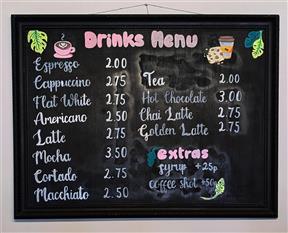 Drinks Menu
Espresso 2.00
Cappuccino 2.75
Flat White 2.75
Americano 2.50
Latte 2.75
Mocha 3.50
Cortado 2.75
Macchiato 2.50
Tea 2.00
Hot Chocolate 3.00
Chai Latte 2.75
Golden Latte 2.75
extras
syrup +25p
coffee shot +50p